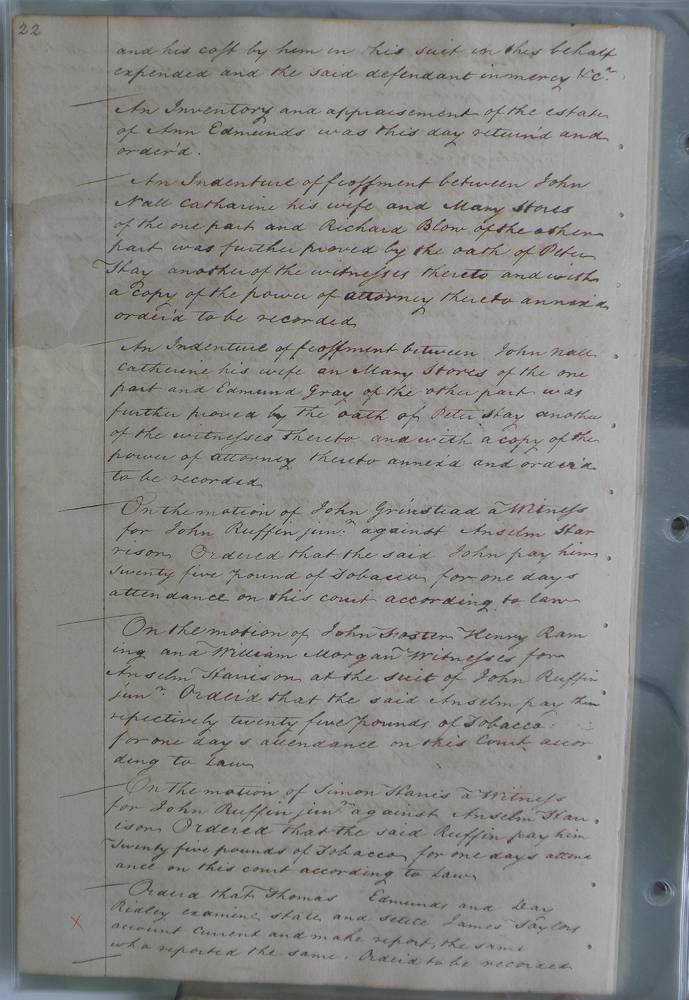 22
and his cost by him in his suit in this behalf
expended and the said defendant in mercy &c.r
An Inventory and appraisement of the estate
of Ann Edmunds was this day return'd and
order'd.
An Indenture of feoffment between John
Nall Catharine his wife and Mary Stores
of the one part and Richard Blow of the other
part was further proved by the oath of Peter
Hay another of the witnesses thereto and with
a copy of the power of attorney thereto annex'd
order'd to be recorded
An Indenture of feoffment between John Nall
Catherine his wife an Mary Stores of the one
part and Edmund Gray of the other part was
further proved by the oath of Peter Hay another
of the witnesses thereto and with a copy of the
power of attorney thereto annex'd and order'd
to be recorded
On the motion of John Grinstead a Witness
for John Ruffin junr. against Anselm Har
rison Ordered that the said John pay him
twenty five pound of Tobacco for one days
attendance on this court according to law
On the motion of John Henry Ram
ing and William Morgan Witnesses for
Anselm Harrison at the suit of John Ruffin
junr. Order'd that the said Anselm pay them
respectively twenty five pounds of Tobacco
for one day's attendance on this Court accor
ding to Law
On the motion of Simon Harris a Witness
for John Ruffin junr. against Anselm Har
ison Ordered that the said Ruffin pay him
twenty five pounds of Tobacco for one days attend
ance on this court according to Law
Orderd that Thomas Edmunds and Day
Ridley examine, state and settle James Taylors
account current and make report, the same
who reported the same. Order'd to be recorded